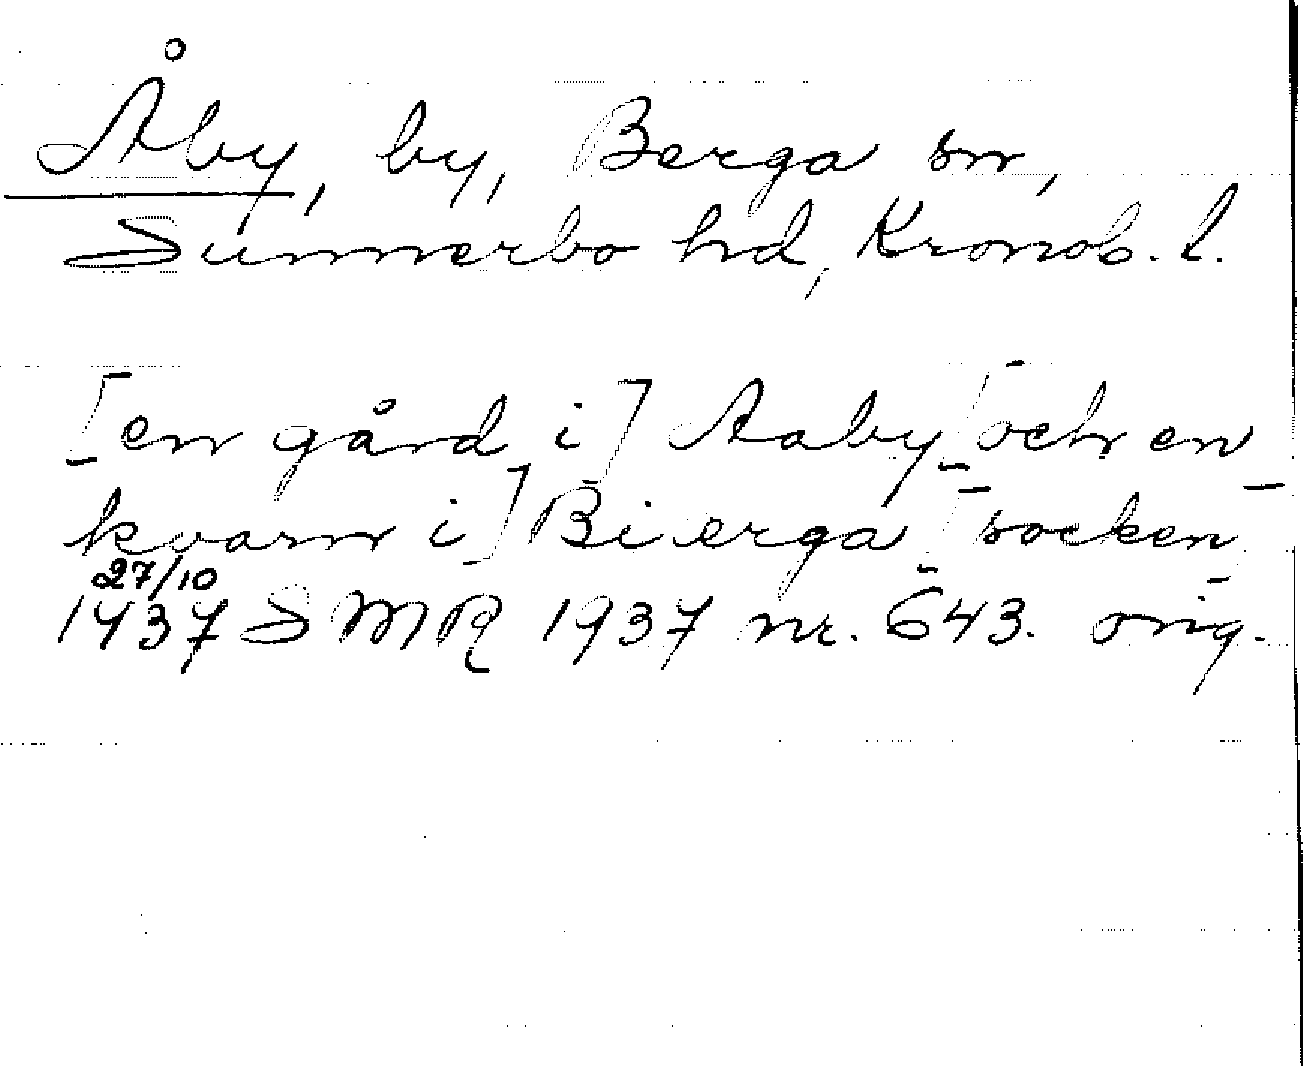 Åby, by, Berga sn,
Sunnerbo hd, Kronob. l.
[en gård i] Aaby [och en
kvarn i] Bierga [socken]
27/10
1437 SMR 1937 nr. 643. orig.